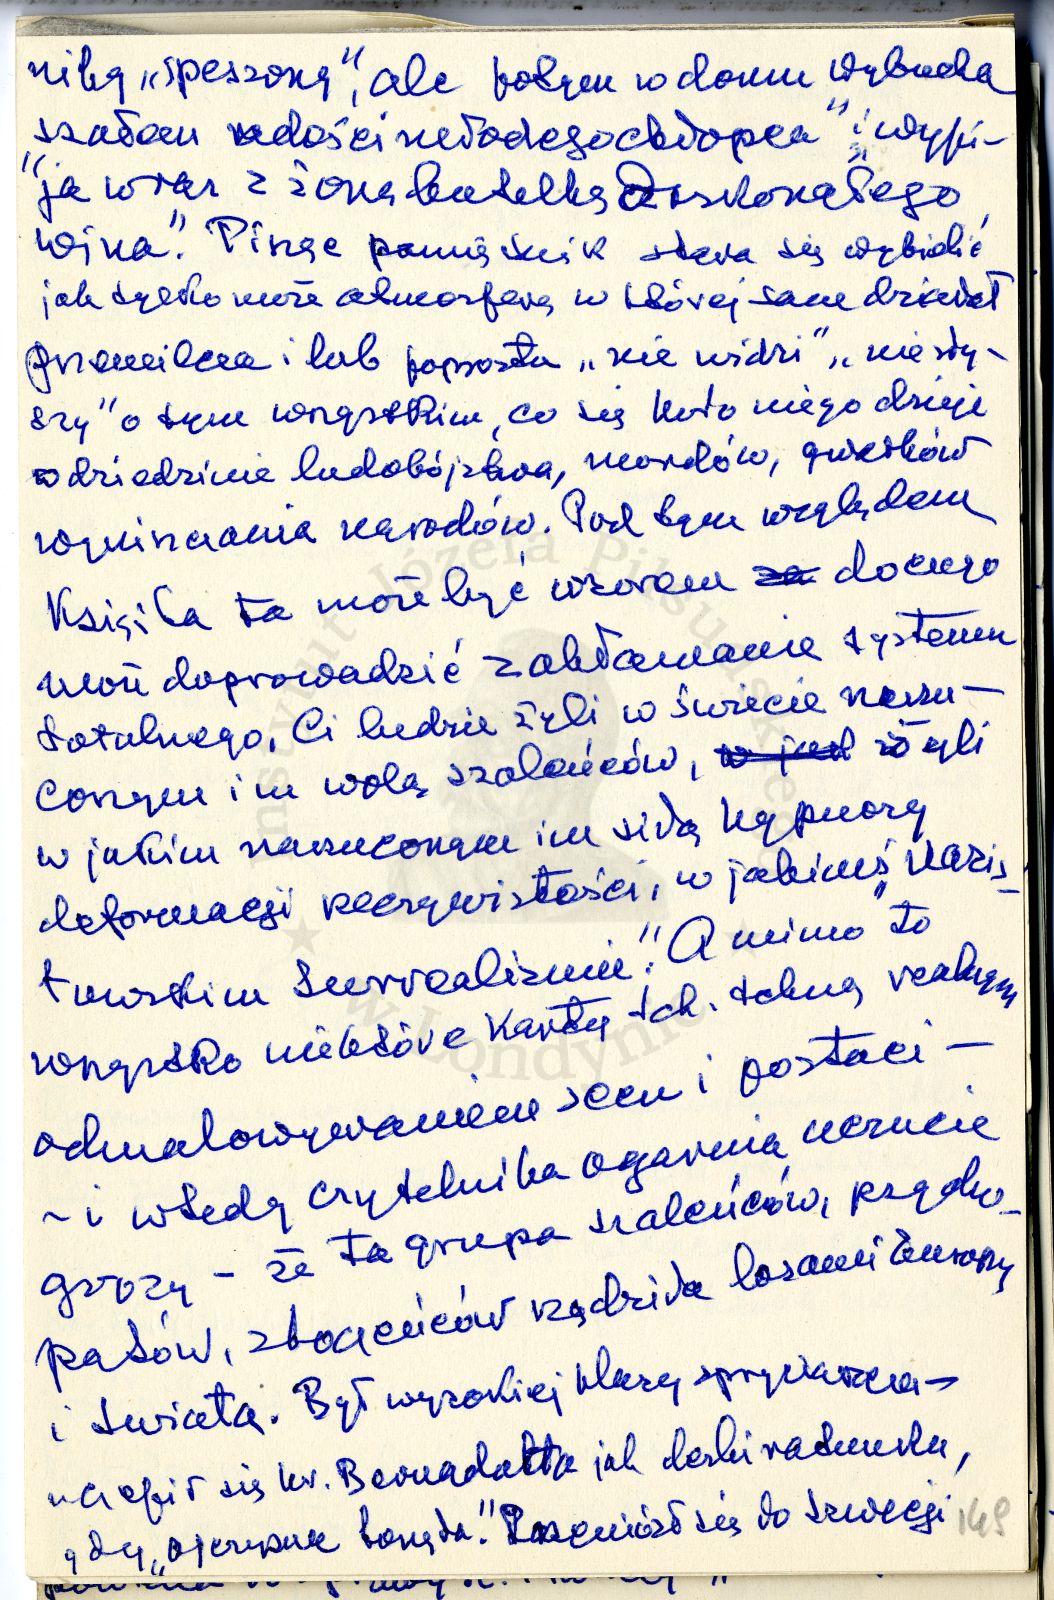 niką „speszoną”, ale potym w domu wybucha
szałem radości młodego chłopca” i wypi-
„ja wraz z żoną butelkę doskonałego
wina”. Pisząc pamiętnik stara się wybielić
jak tylko może atmosferę w której sam działał
przemilcza i lub poprostu „nie widzi”, „nie sły-
szy” o tym wszystkim, co się koło niego dzieje
w dziedzinie ludobójstwa, mordów, gwałtów
wyniszczania narodów. Pod tym względem
Książka ta może być wzorem do czego
może doprowadzić zakłamanie systemu
totalnego. Ci ludzie żyli w świecie narzu-
conym im wolą szaleńców, żyli
w jakim narzuconym im siłą hypnozy
deformacji rzeczywistości, w jakimś „nazis-
towskim surrealizmie”. A mimo to
wszystko niektóre karty tch. tchną realnym
odmalowywaniem scen i postaci –
– i wtedy czytelnika ogarnia uczucie
grozy – że ta grupa szaleńców, psycho-
patów, zboczeńców rządziła losami Europy
i świata. Był wysokiej klasy
uczepił się hr. Bernadotta jak deski ratunku,
gdy „ojczyzna tonęła”. Przeniósł się do Szwecji
149
Instytut Józefa Piłsudskiego
w Londynie